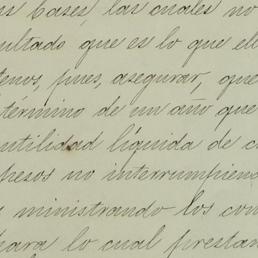 las Cases, las cuales no
sultado que es lo que el
tenos, pues, asegurar, que
término de un año que
utilidad líquida de c
pesos no interrumpien
ministrando los con
para lo cual prestan